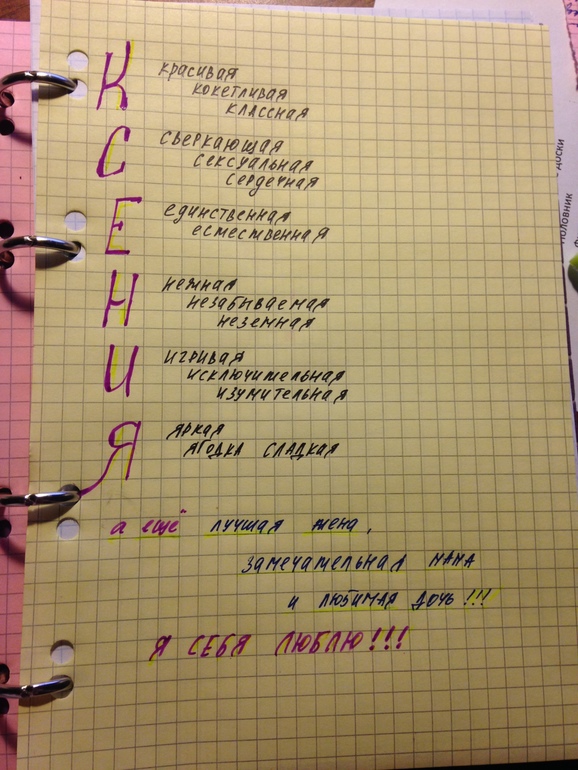 К красивая
кокетливая
классная
С сверкающая
сексуальная
сердечная
Е единственная
естественная
Н нежная
незабываемая
неземная
И игривая
исключительная
изумительная
Я яркая
ягодка сладкая
а ещё лучшая жена,
замечательная мама
и любимая дочь!!!
Я СЕБЯ ЛЮБЛЮ!!!
ДОСКИ
ПОЛОВНИК